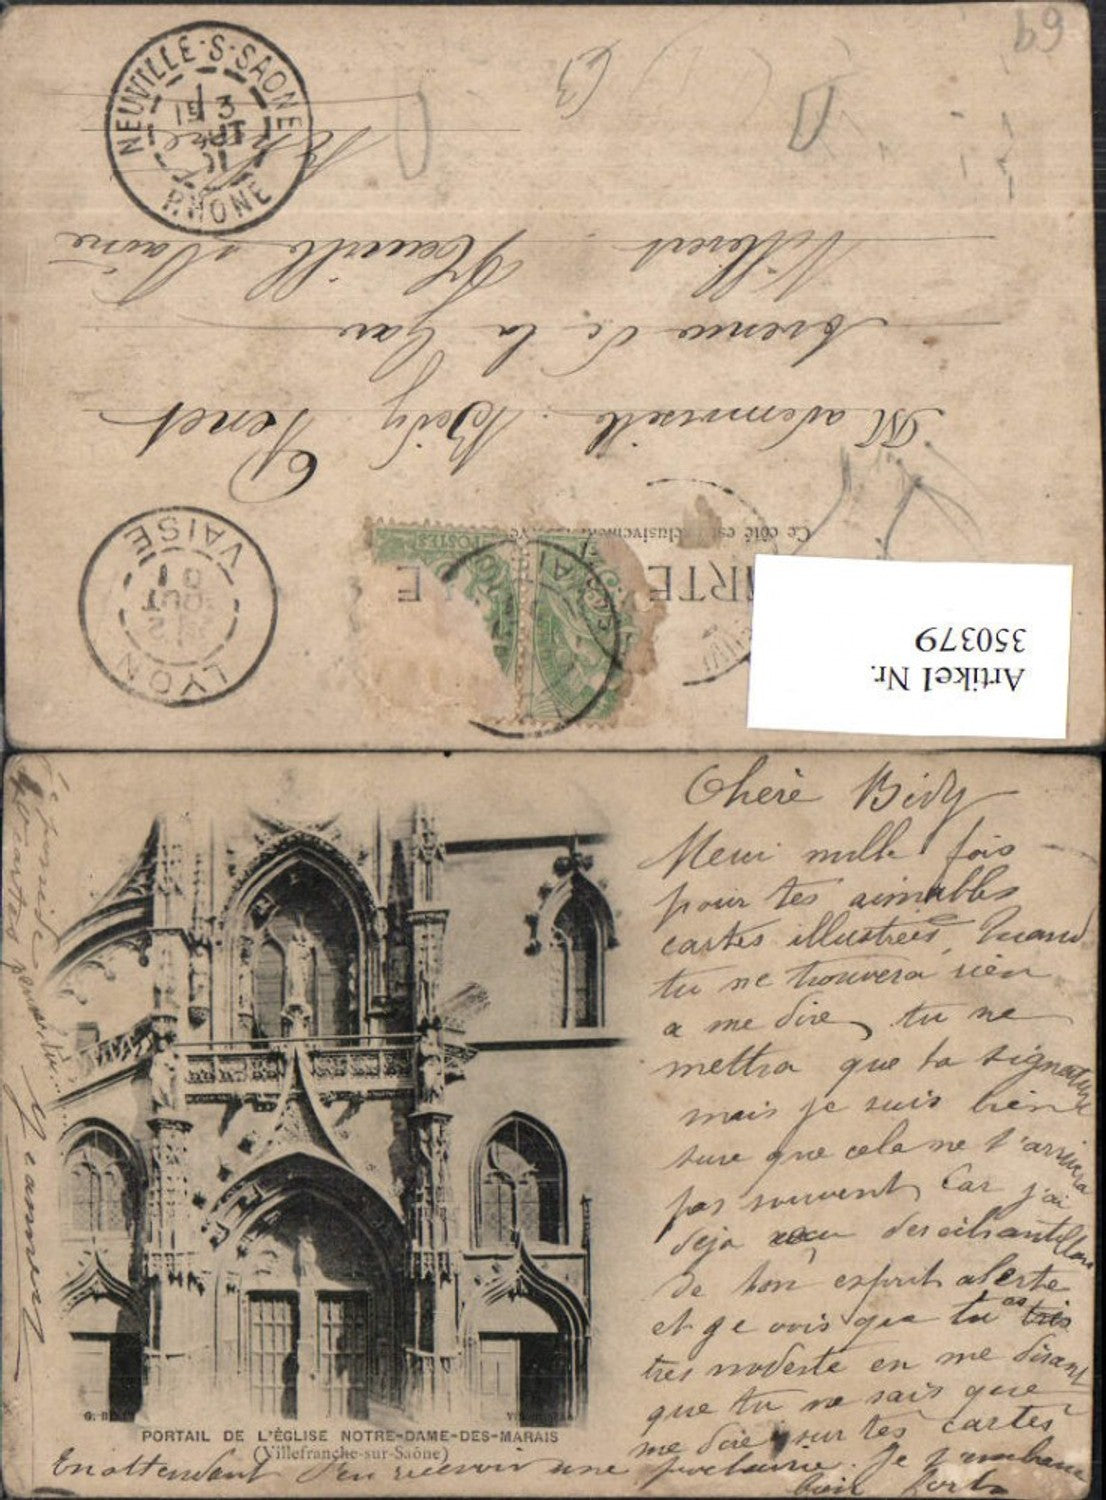 69
NEUVILLE-S-SAONE
RHONE
Villevert Neuville s/ Saône
Avenue de la Gare
Mademoiselle Bidy Penet
LYON
VAISE
Ce côté est exclusivement
POSTES
Artikel Nr.
350379
Chère Bidy
Merci mille fois
pour tes aimables
cartes illustrées, Quand
tu ne trouvera rien
a me dire, tu ne
mettra que ta signature
mais je suis bien
sure que cela ne t'arrivera
pas souvent, Car j'ai
déja des échantillons
de ton esprit alerte
et je vois que tu es
très modeste en me disant
que tu ne sais que
me dire sur tes cartes
En attendant d'en recevoir une prochaine. Je t'embrasse
bien fort
PORTAIL DE L'ÉGLISE NOTRE-DAME-DES-MARAIS
(Villefranche-sur-Saône)